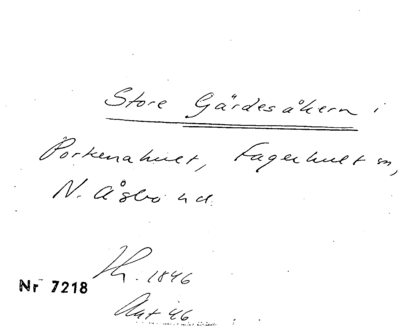 Store Gärdesåkern i
Porkenahult, Fagerhult sn,
N. Åsbo hd.
Nr 7218
Th. 1846
Akt 46